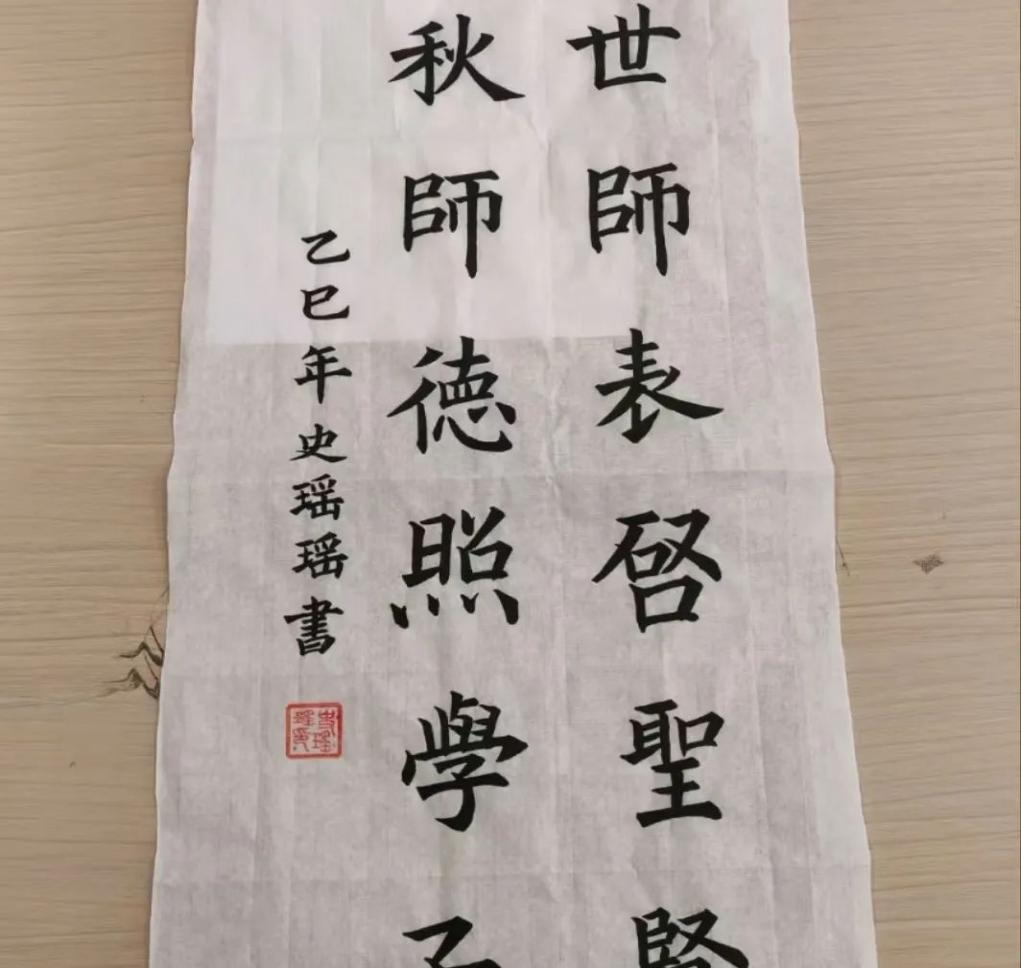 世師表啓聖賢
秋師德照學子
乙巳年史瑶瑶書